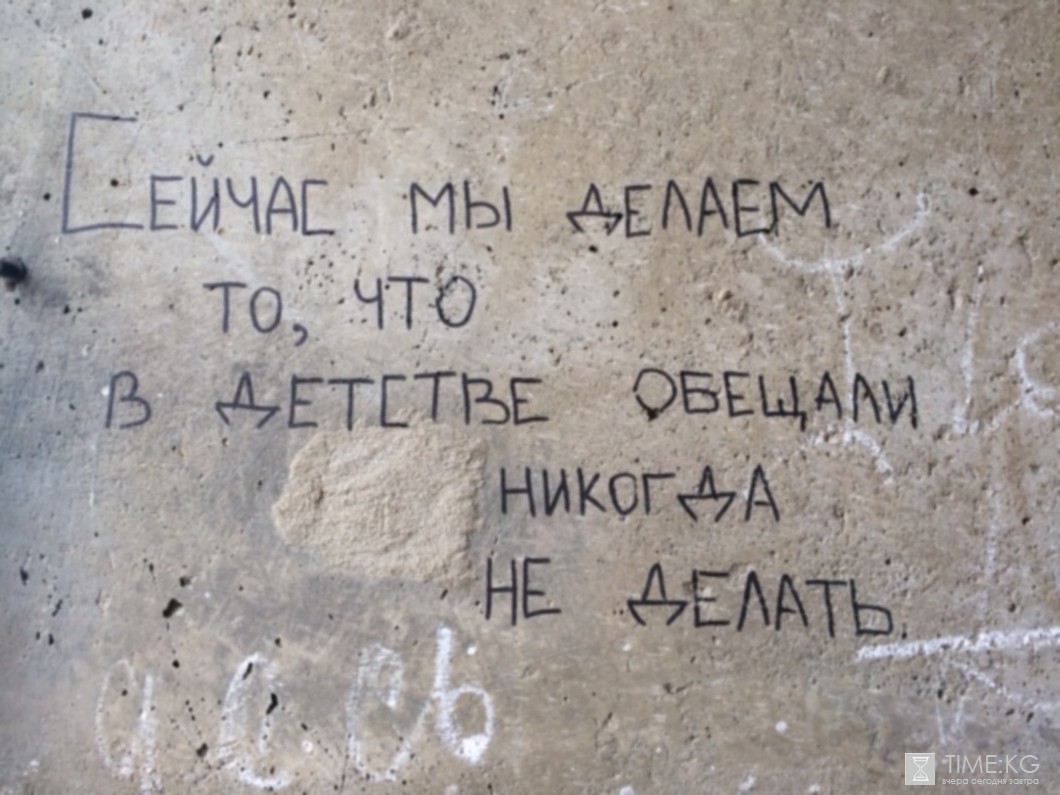 Сейчас мы делаем
то, что
в детстве обещали
никогда
не делать
TIME:KG
вчера сегодня завтра